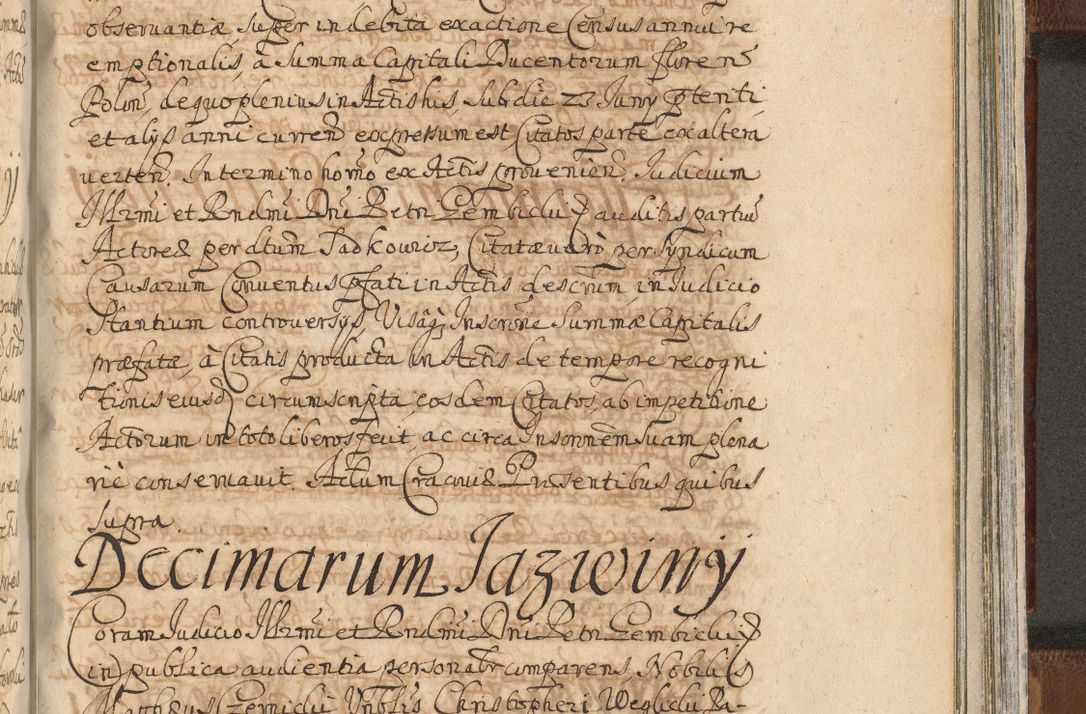 observantiæ, super indebita exactione Census annui re
emptionalis, à Summa Capitali Ducentorum floren̄
Polon̄, de quo plenius in Actis his, sub die 23 Juny pteriti
et alys anni curren̄ expressum est Citatos parte ex altera
verten̄. In termino hor̄no ex Actis provenien̄. Iudicium
Illrmi et Rndmi Dni Petri Gembicki auditis partiū
Actorea per dtum Jadkowicz, Citatæ verò per Syndicum
Causarum Conventus pfati in Actis descrm, in Iudicio
Stantium controversys, Visaq Inscrne Summæ Capitalis
præfatæ, à Citatis producta in Actis de tempore recogni
tionis eiusd circumscripta, eosdem Citatos, ab impetitione
Actorum in toto liberos fecit, ac circa Inscrnem suam plena
riè conservavit. Actum Cracoviæ Præsentibus quibus
supra
Decimarum Jazwiny
Coram Iudicio Illrmi et Rndmi Dni Petri Gembicki
in publica audientia personalr comparens Nobilis
Matthæus Czernicki Christopheri